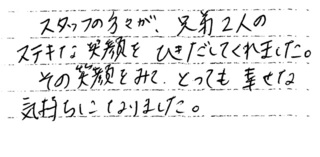 スタッフの方々が、兄弟2人の
ステキな笑顔を ひきだしてくれました。
その笑顔をみて、とっても幸せな
気持ちになりました。